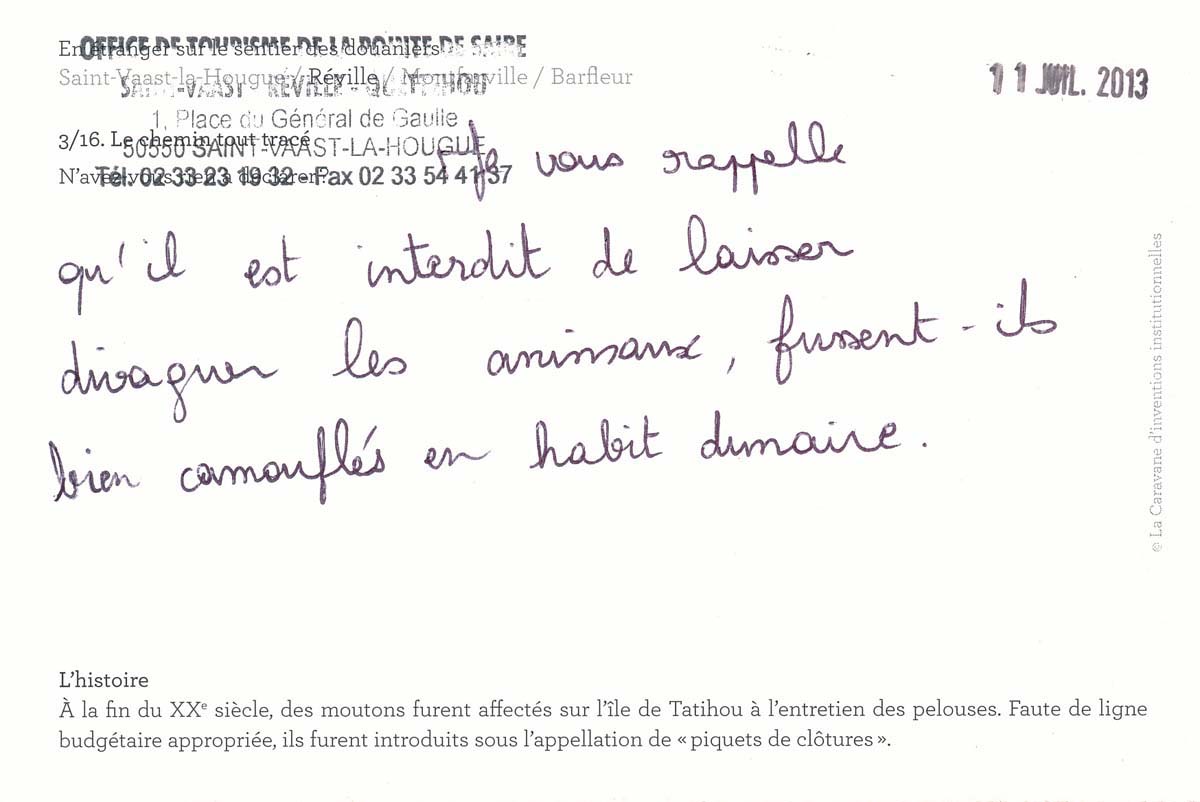 OFFICE DE TOURISME DE LA POINTE DE SAIRE
SAINT-VAAST - RÉVILLE - QUETTEHOU
1, Place du Général de Gaulle
50550 SAINT-VAAST-LA-HOUGUE
Tél. 02 33 23 19 32 - Fax 02 33 54 41 37
11 JUIL. 2013
En étranger sur le sentier des douaniers
Saint-Vaast-la-Hougue / Réville / Montfarville / Barfleur
3/16. Le chemin tout tracé
N'avez-vous rien à déclarer ?
Je vous rappelle
qu'il est interdit de laisser
divaguer les animaux, fussent-ils
bien camouflés en habit dunaire.
© La Caravane d'inventions institutionnelles
L'histoire
À la fin du XXe siècle, des moutons furent affectés sur l'île de Tatihou à l'entretien des pelouses. Faute de ligne
budgétaire appropriée, ils furent introduits sous l'appellation de « piquets de clôtures ».